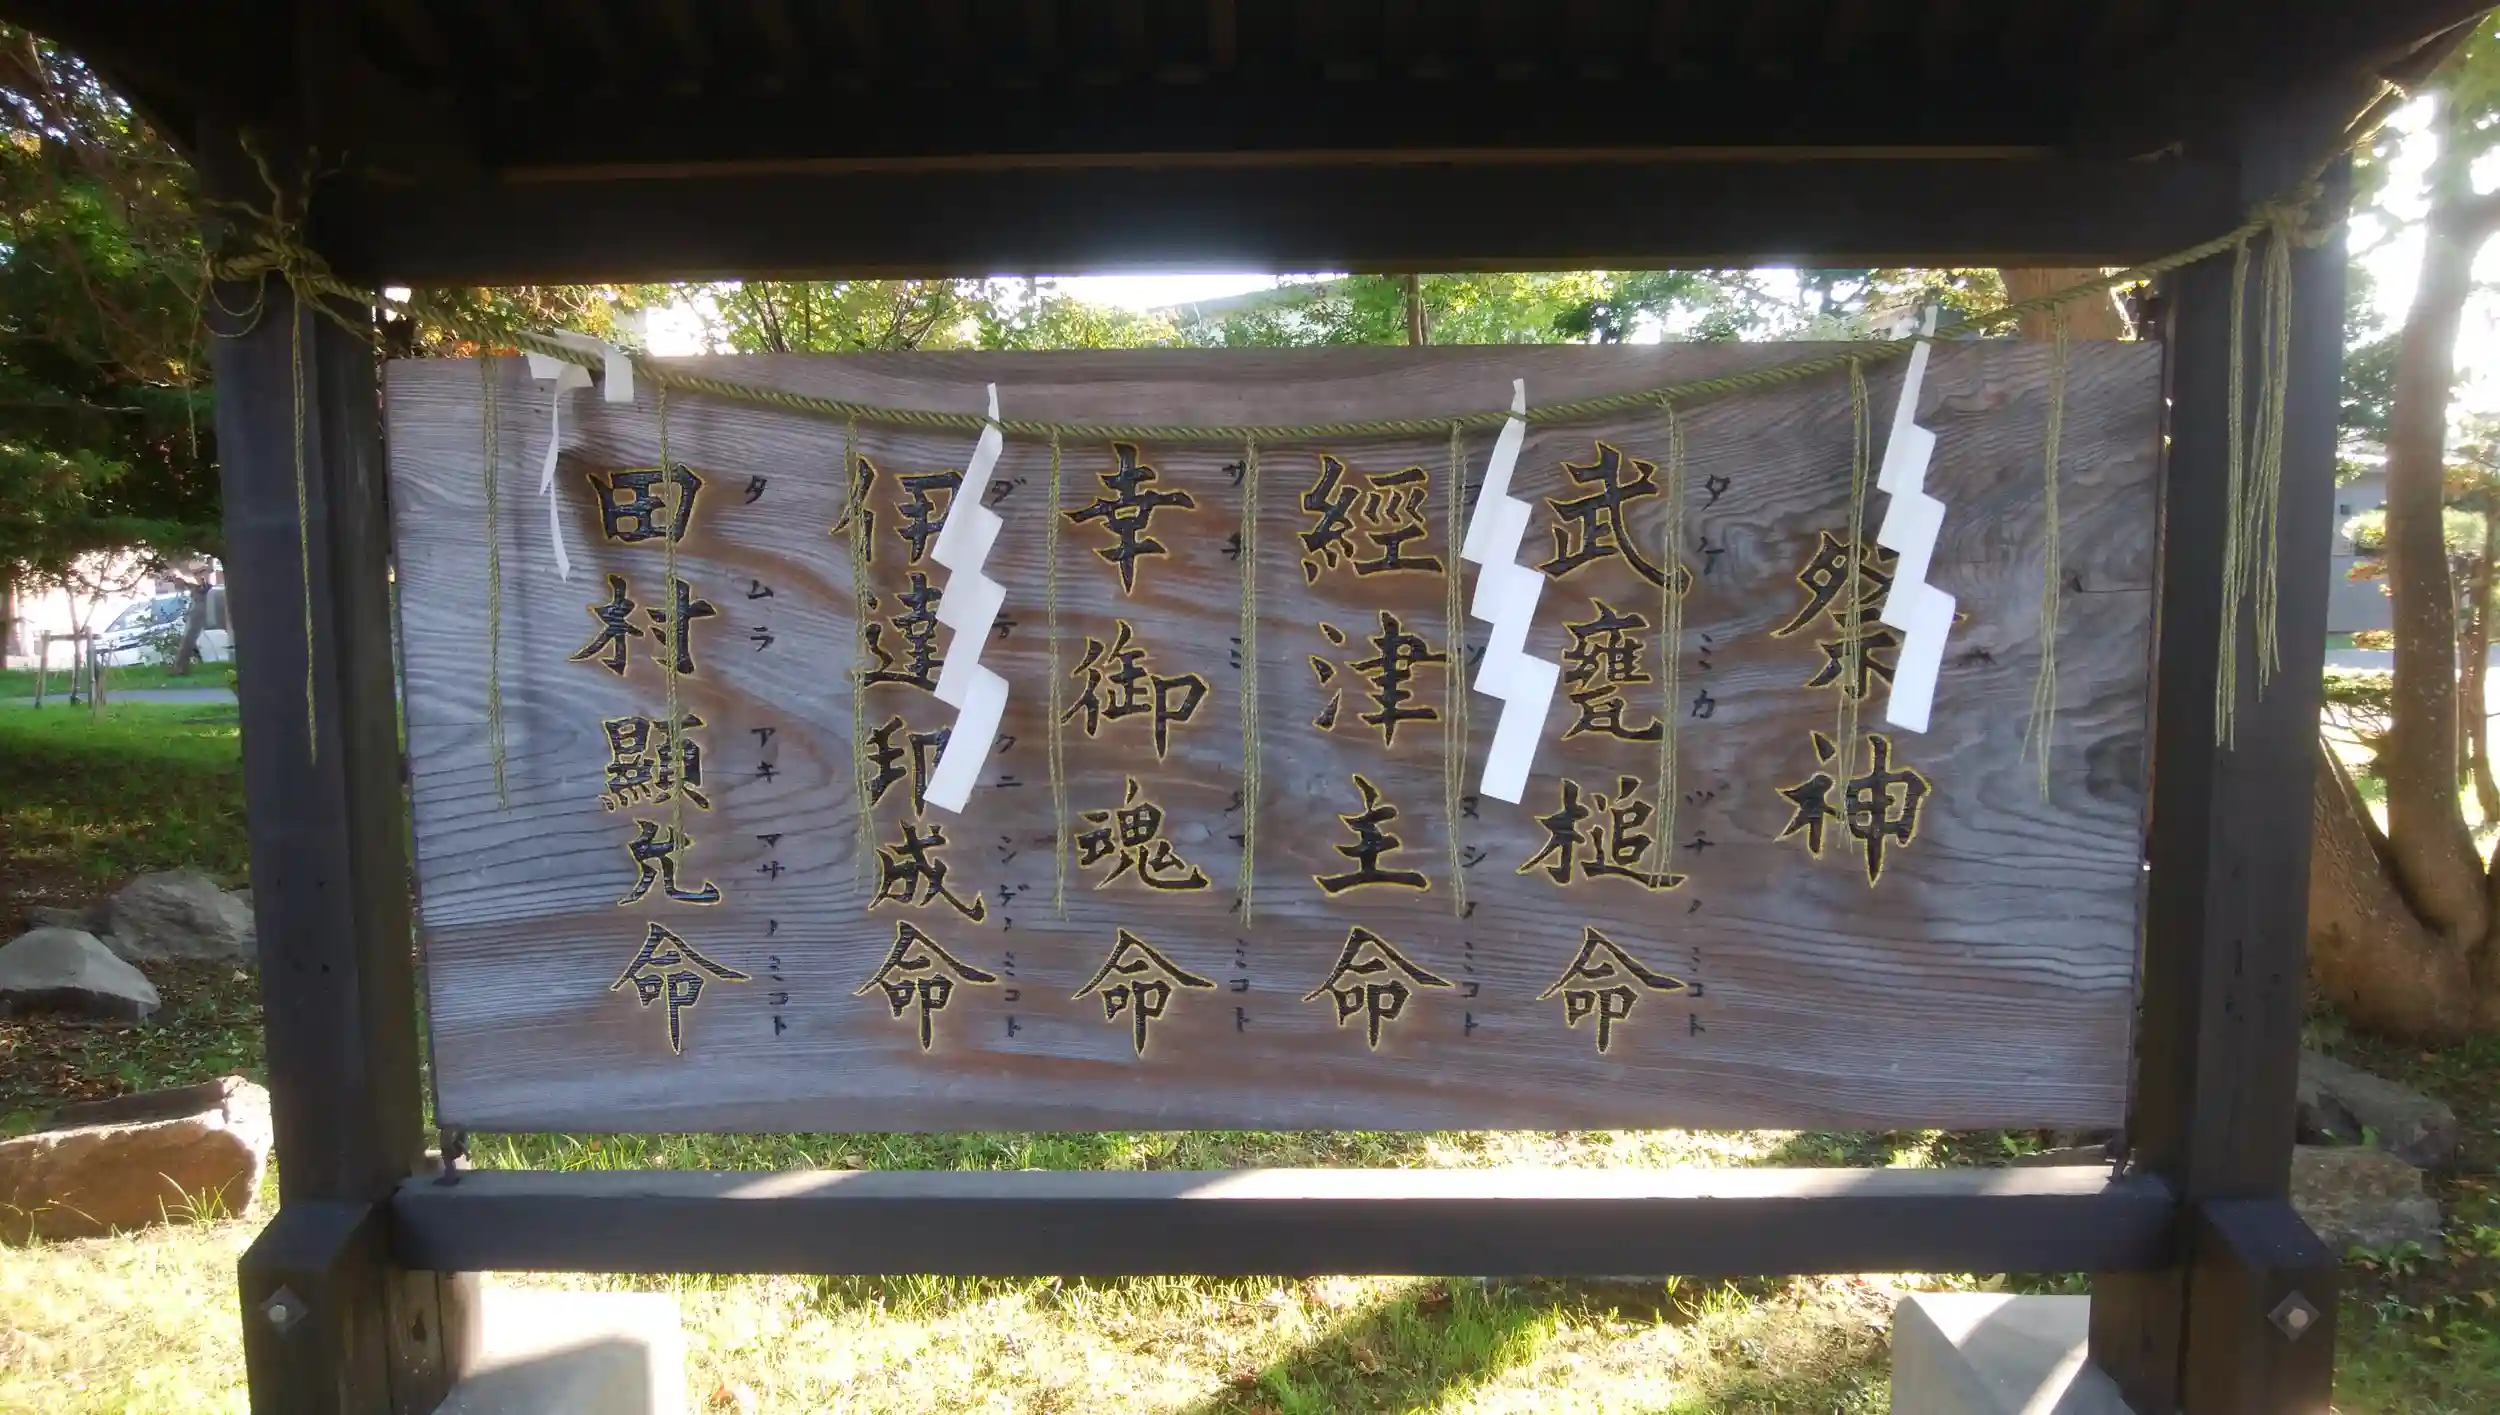 祭神
武甕槌命
タケミカツチノミコト
經津主命
ヌシノミコト
幸御魂命
サチミタマノミコト
伊達邦成命
ダテクニシゲノミコト
田村顯允命
タムラアキマサノミコト